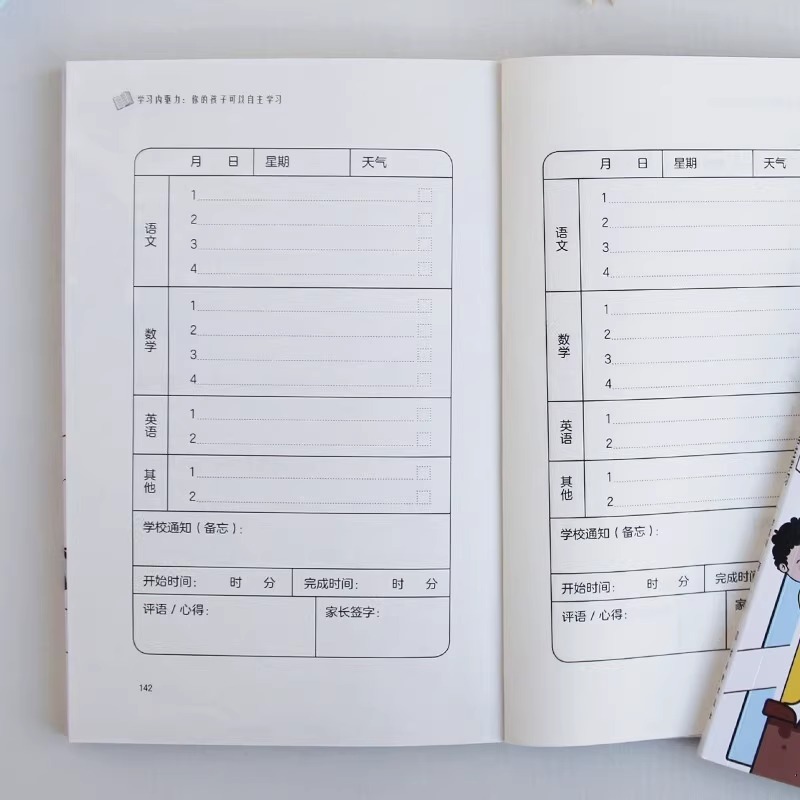 学习内驱力：你的孩子可以自主学习
月 日 星期 天气
语文
1
2
3
4
数学
1
2
3
4
英语
1
2
其他
1
2
学校通知（备忘）：
开始时间： 时 分 完成时间： 时 分
评语/心得： 家长签字：
142
月 日 星期 天气
语文
1
2
3
4
数学
1
2
3
4
英语
1
2
其他
1
2
学校通知（备忘）：
开始时间： 时 分 完成时间
评语/心得：